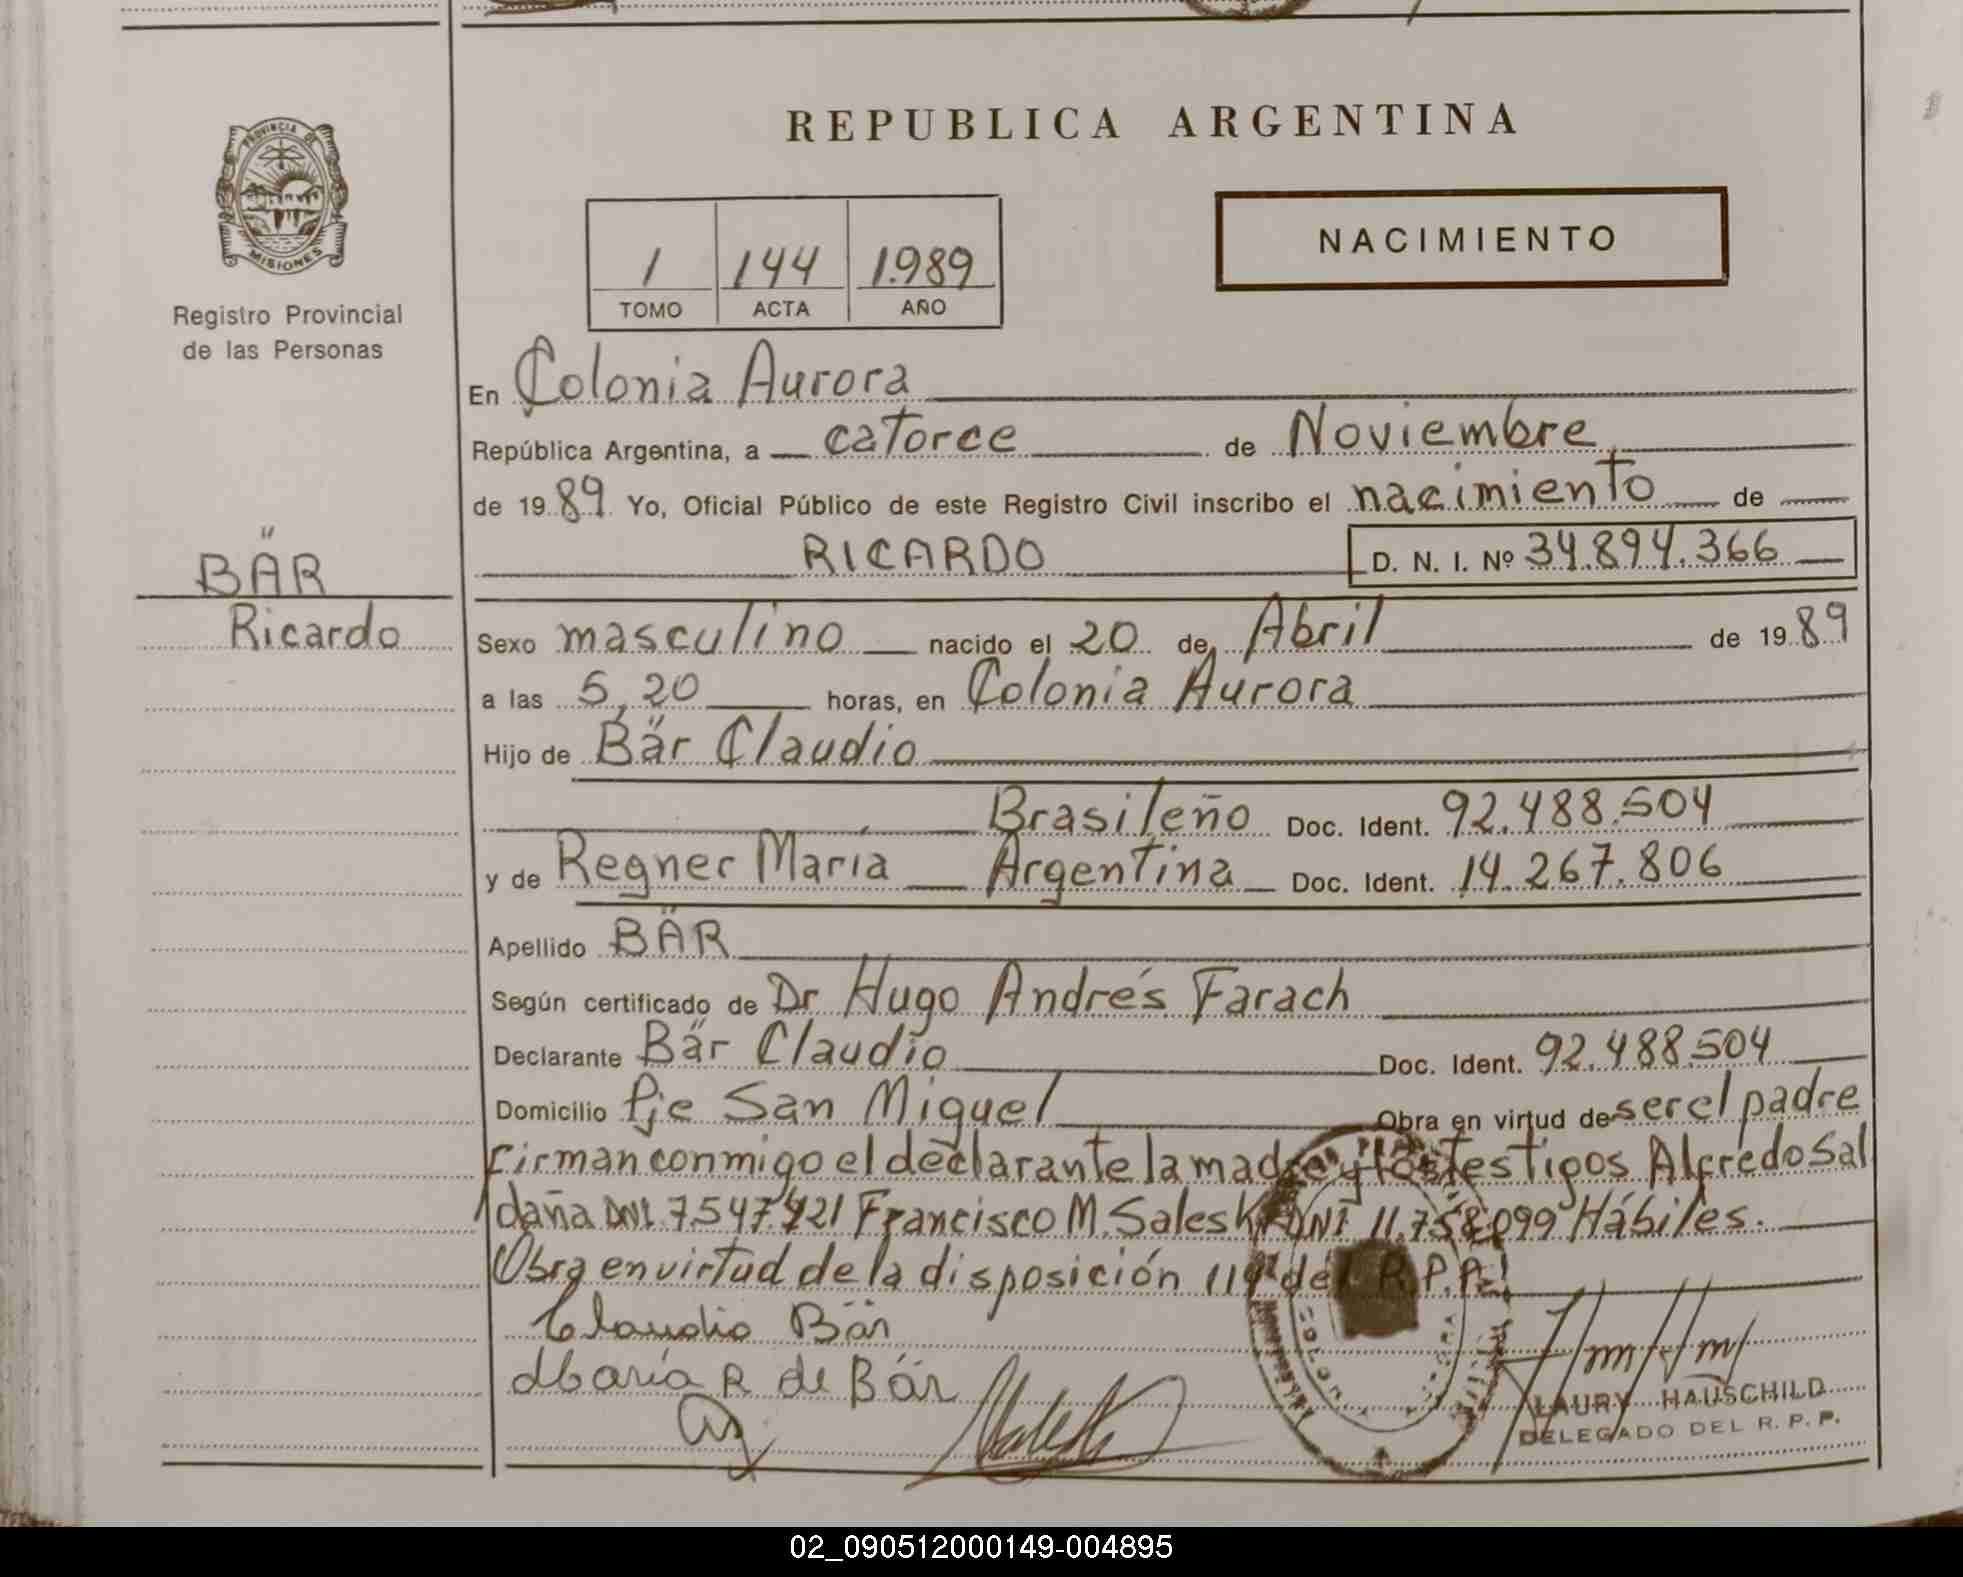 PROVINCIA DE
MISIONES
Registro Provincial
de las Personas
BÄR
Ricardo
REPUBLICA ARGENTINA
NACIMIENTO
1 144 1.989
TOMO ACTA AÑO
En Colonia Aurora
República Argentina, a catorce de Noviembre
de 1989 Yo, Oficial Público de este Registro Civil inscribo el nacimiento de
RICARDO D. N. I. Nº 34.894.366
Sexo masculino nacido el 20 de Abril de 1989
a las 5,20 horas, en Colonia Aurora
Hijo de Bär Claudio
Brasileño Doc. Ident. 92.488.504
y de Regner María Argentina Doc. Ident. 14.267.806
Apellido BÄR
Según certificado de Dr Hugo Andrés Farach
Declarante Bär Claudio Doc. Ident. 92.488.504
Domicilio Pje San Miguel Obra en virtud de ser el padre
firman conmigo el declarante la madre y los testigos Alfredo Sal
daña DNI. 7.547.421 Francisco M. Saleski DNI 11.758.099 Hábiles.
Obra en virtud de la disposición 119 del R.P.P.
Claudio Bär
María R de Bär
LAURY HAUSCHILD
DELEGADO DEL R. P. P.
02_090512000149-004895